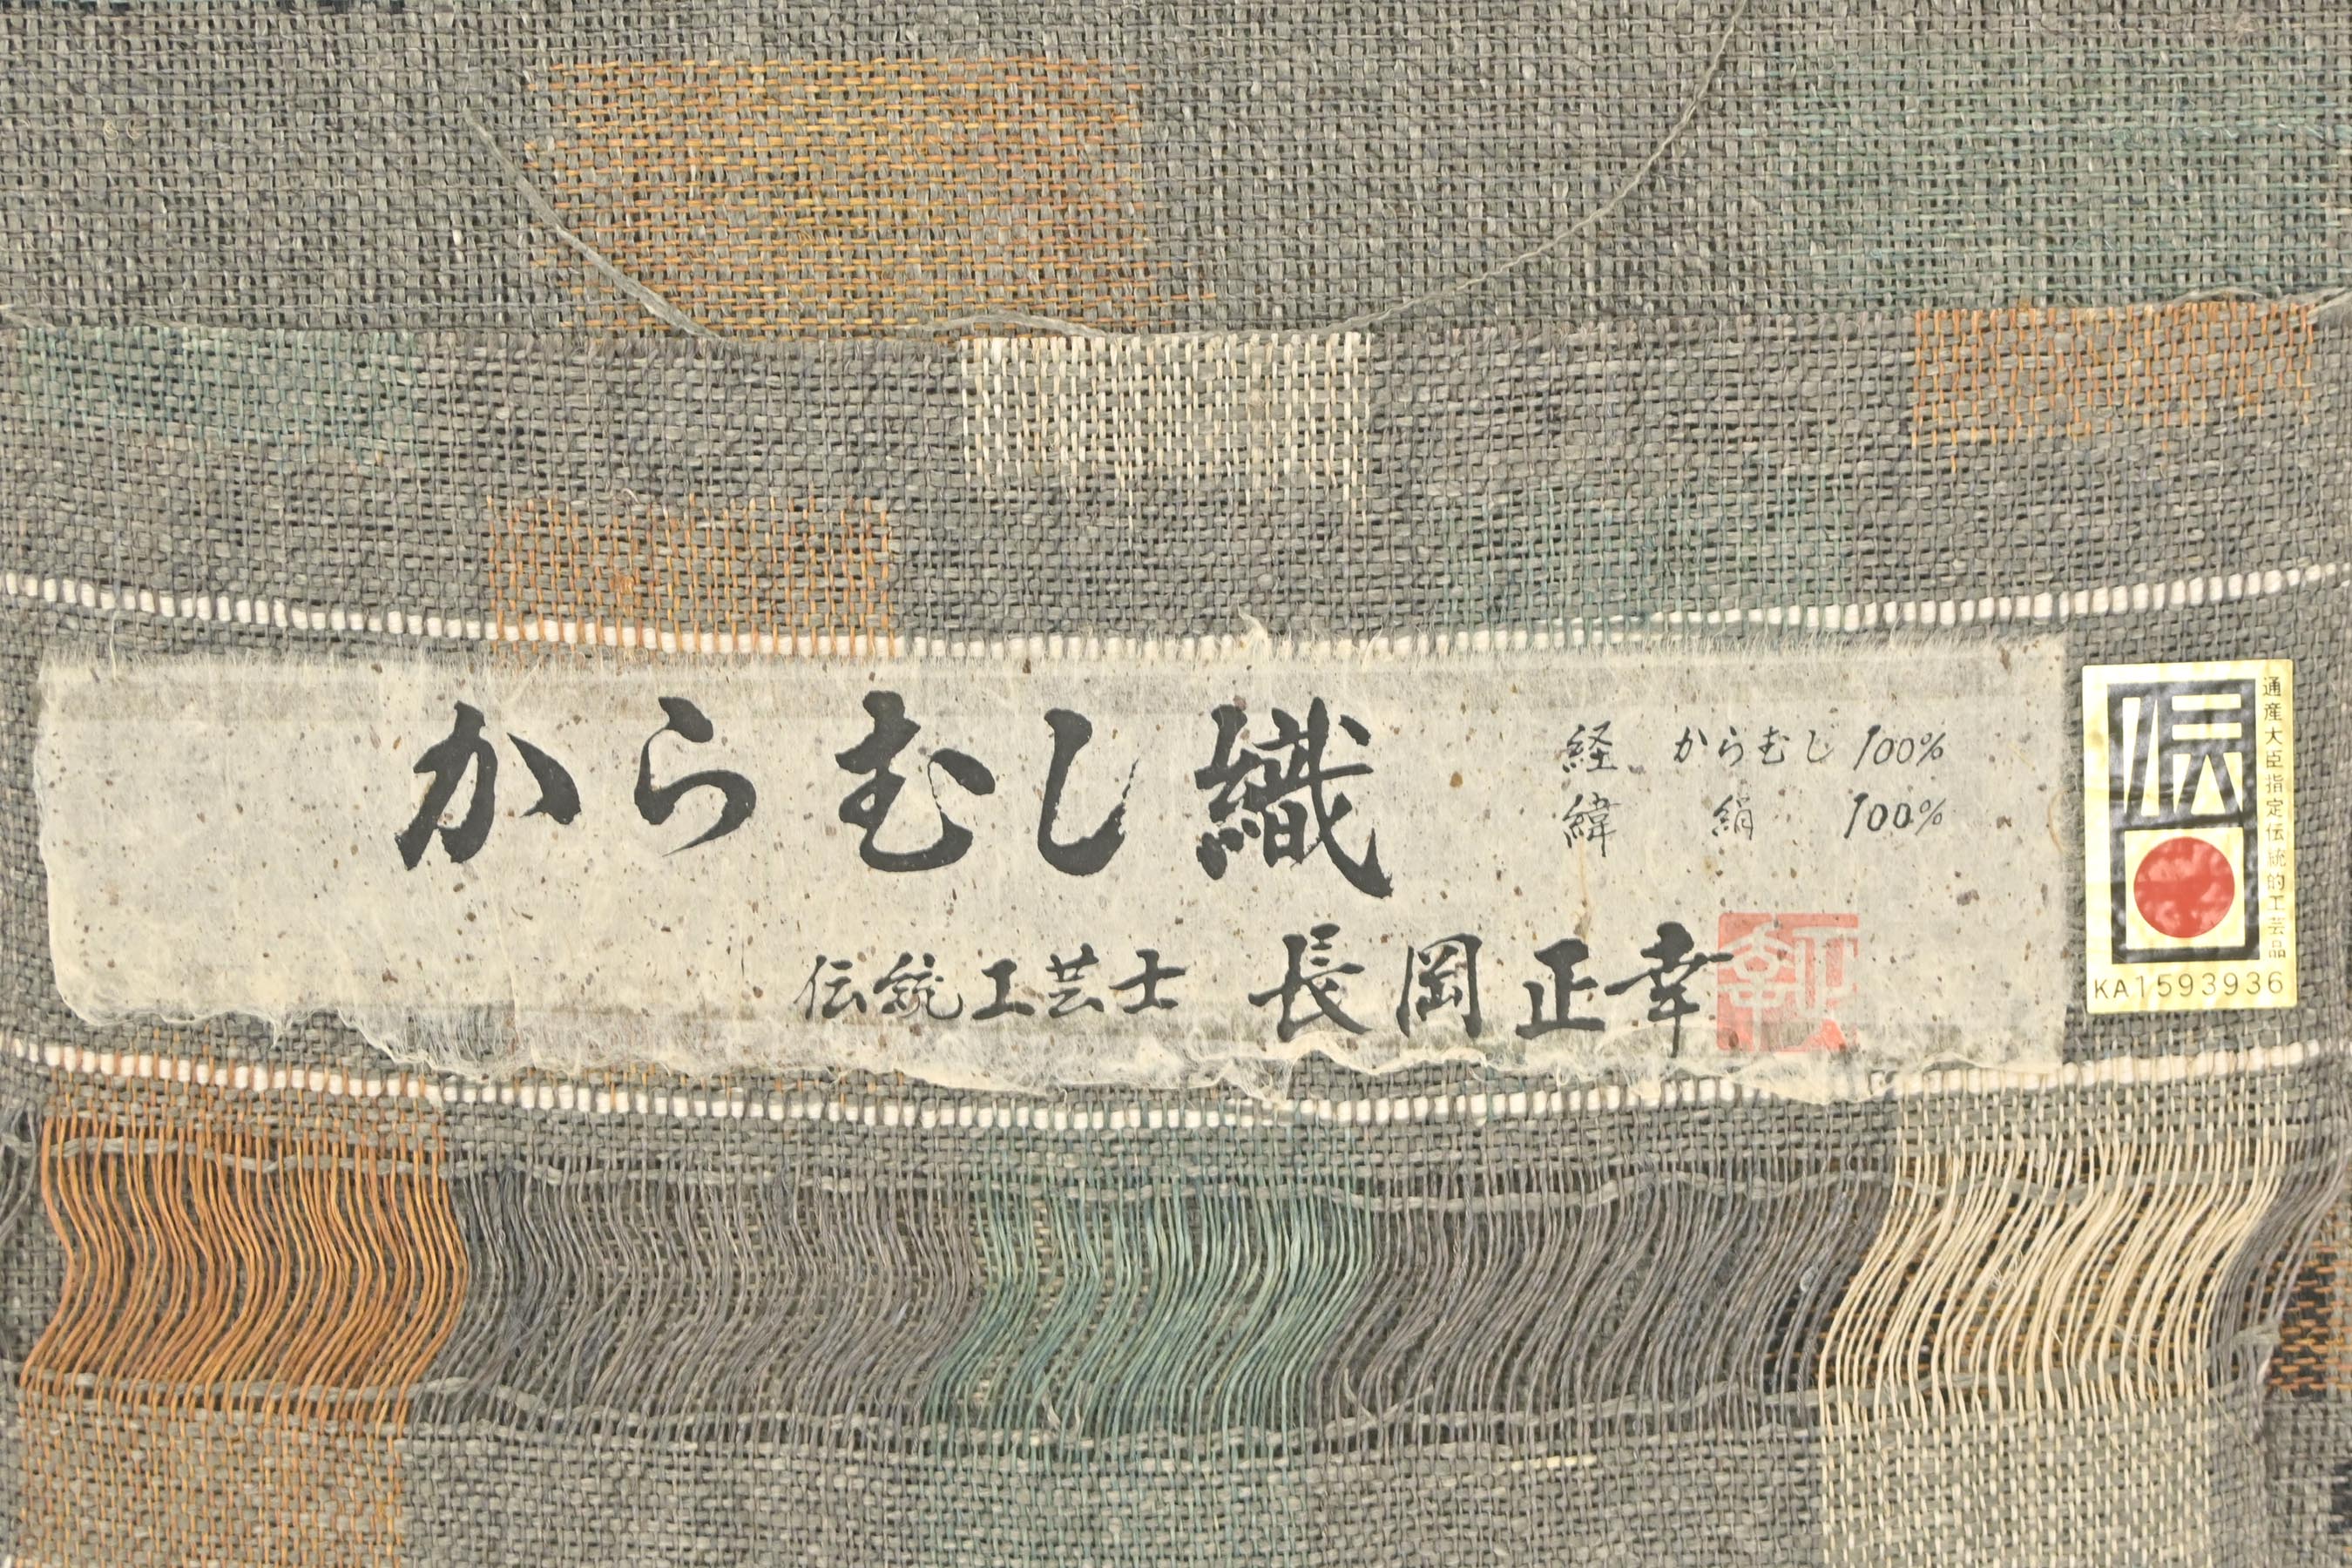 からむし織
経 からむし 100%
緯 絹 100%
伝統工芸士 長岡正幸
伝
通産大臣指定伝統的工芸品
KA1593936